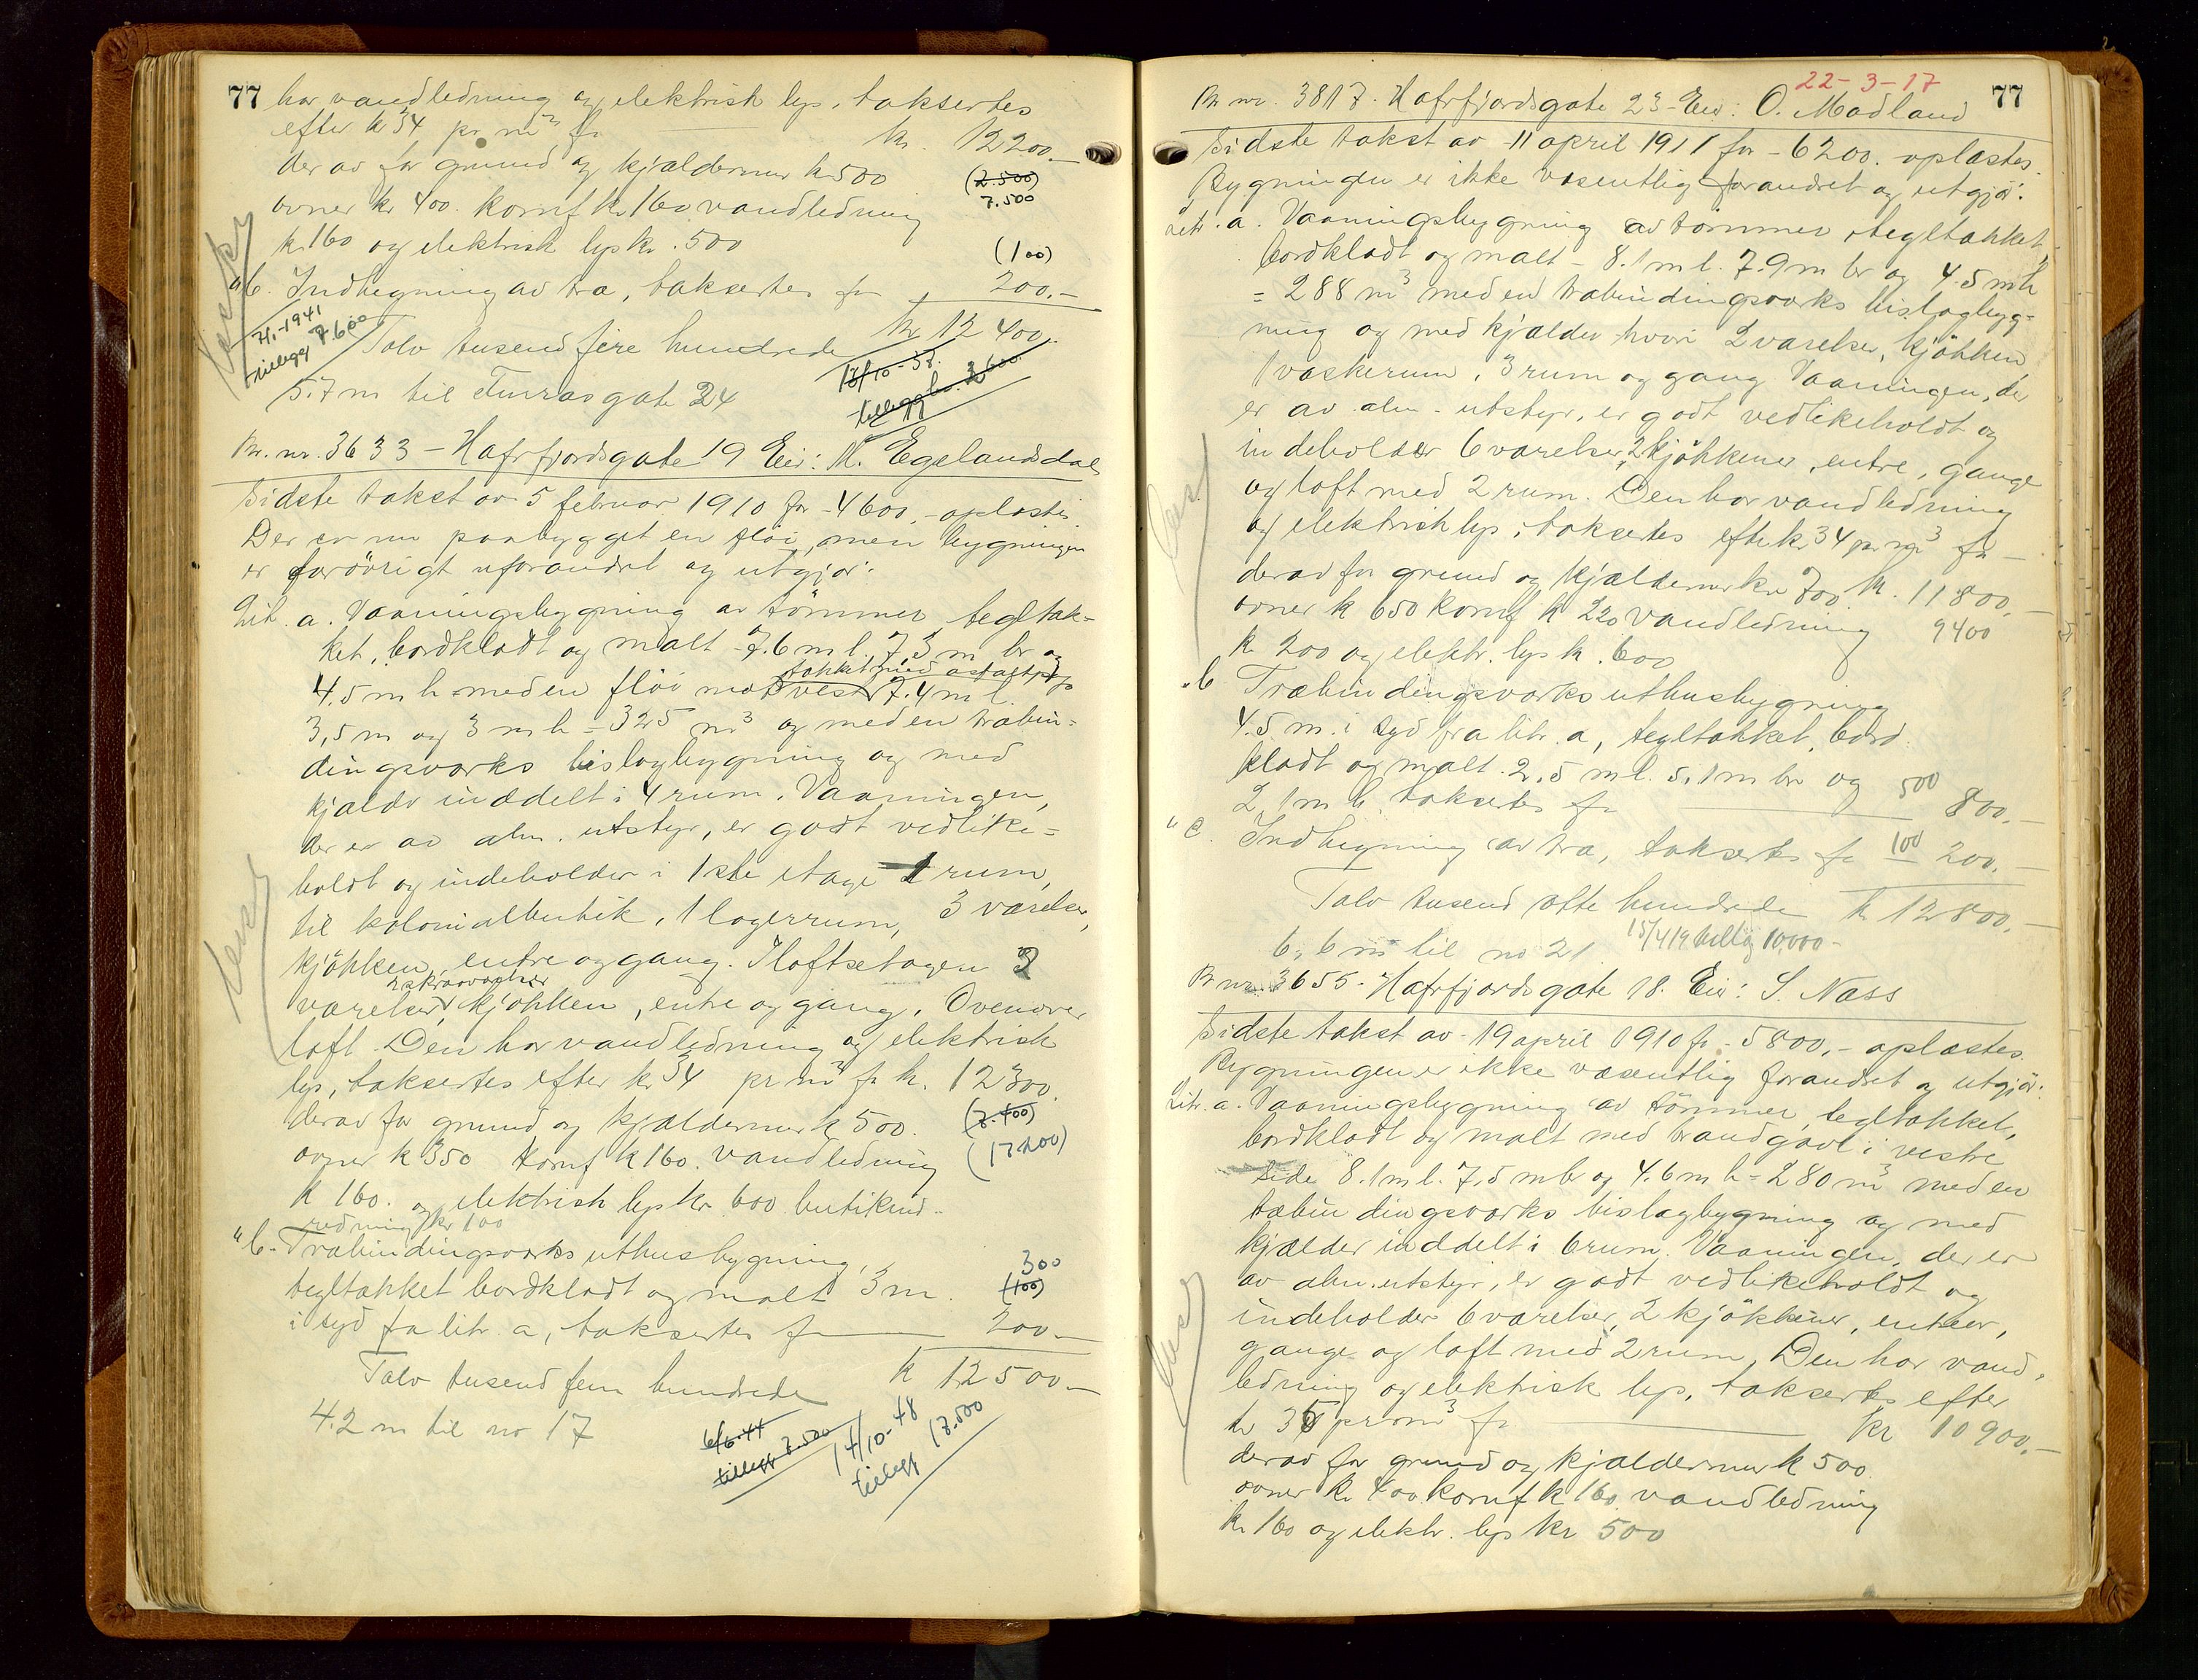 77
har vandledning og elektrisk lys, taksertes
efter kr 34 pr m³ fr kr. 12200.-
der av for grund og kjældermur kr 500 (2.500)
ovner kr 400. komf kr 160 vandledning 7.500
kr 160 og elektrisk lys kr. 500
(100)
"b. Indhegning av træ, taksertes fr 200.-
kr 12400.-
Tolv tusend fire hundrede
1941
tillegg 7600
13/10-38.
tillegg kr. 3600
5.7 m til Furrasgate 24
Br. nr. 3633 - Hafrfjordsgate 19 Eier: M. Egelandsdal
Sidste takst av 5 februar 1910 for - 4600.- oplæstes.
Der er nu paabygget en fløi, men bygningen
er forøvrigt uforandret og utgjør:
Lit. a. Vaaningsbygning av tømmer, tegltak-
ket, bordklædt og malt - 7.6 m l. 7,3 m br og
takket med asfaltpap
4.5 m h. med en fløi mot vest 7.4 m l.
3,5 m og 3 m h = 325 m³ og med en træbin-
dingsværks bislagbygning og med
kjælder inddelt i 4 rum. Vaaningen,
der er av alm. utstyr, er godt vedlike-
holdt og indeholder i 1ste etage 1 rum,
til kolonialbutik, 1 lagerrum, 3 værelser,
kjøkken, entre og gang. I loftsetagen 3
2 skraavægger
værelser, kjøkken, entre og gang. Ovenover
loft. Den har vandledning og elektrisk
lys, taksertes efter kr 34 pr m³ fr kr. 12300.
derav for grund og kjældermur kr 500. (7.400)
ovner kr 350 komf kr 160. vandledning (17200)
kr 160. og elektrisk lys kr 600 butikind-
redning kr 100
"b. Træbindingsværks uthusbygning, 300
tegltakket bordklædt og malt 3 m. (100)
i syd fra litr. a, taksertes fr 200.-
Tolv tusend fem hundrede kr 12500.-
4.2 m til no 17
6/6-44
tillegg 7.500
14/10-48
tillegg 17.500
22-3-17
77
Br nr. 3817. Hafrfjordsgate 23 - Eier: O. Madland
Sidste takst av 11 april 1911 for - 6200. oplæstes.
Bygningen er ikke væsentlig forandret og utgjør:
Litr. a. Vaaningsbygning av tømmer, tegltakket,
bordklædt og malt - 8.1 m l. 7.9 m br og 4.5 m h
= 288 m³ med en træbindingsværks bislagbyg-
ning og med kjælder hvori 2 værelser, kjøkken
1 vaskerum, 3 rum og gang Vaaningen, der
er av alm. utstyr, er godt vedlikeholdt og
indeholder 6 værelser, 2 kjøkkener, entre, gange
og loft med 2 rum. Den har vandledning
og elektrisk lys, taksertes efter kr 34 pr m³ fr -
derav for grund og kjældermur kr 700 kr. 11800.-
ovner kr 650 komf kr 220 vandledning 9400
kr 200 og elektr. lys kr. 600
"b Træbindingsværks uthusbygning
4.5 m. i syd fra litr. a, tegltakket, bord
klædt og malt. 2,5 m l. 5,1 m br og 500
2,1 m h, taksertes fr 800.-
"c. Indhegning av træ, taksertes fr 100 200.-
Tolv tusend otte hundrede kr 12800.-
6,6 m til no 21 15/4 19 tillæg 10,000-
Br nr. 3655. Hafrfjordsgate 18. Eier: S. Næss
Sidste takst av - 19 april 1910 fr - 5800.- oplæstes.
Bygningen er ikke væsentlig forandret og utgjør:
Litr. a. Vaaningsbygning av tømmer, tegltakket,
bordklædt og malt med brandgavl i vestre
side 8.1 m l. 7,5 m br og 4.6 m h = 280 m³ med en
træbindingsværks bislagbygning og med
kjælder inddelt i 6 rum. Vaaningen, der er
av alm. utstyr, er godt vedlikeholdt og
indeholder 6 værelser, 2 kjøkkener, entreer,
gange og loft med 2 rum, Den har vand-
ledning og elektrisk lys, taksertes efter
kr 35 pr m³ fr kr 10900.-
derav for grund og kjældermur kr 500
ovner kr 400 komf kr 160 vandledning
kr 160 og elektr. lys kr 500